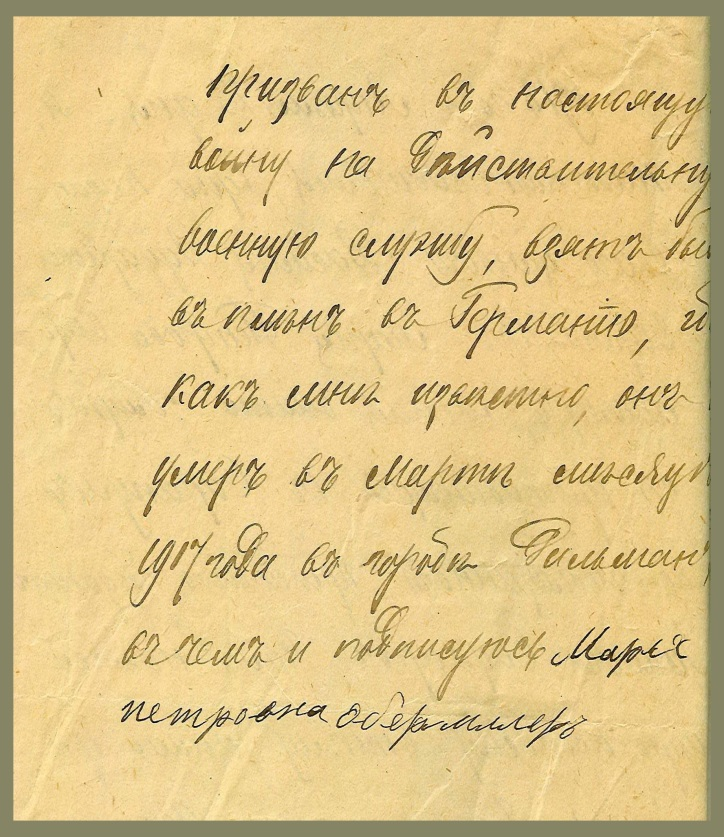 призванъ въ настоящу
войну на Дѣйствительну
военную службу, взятъ бы
въ плѣнъ въ Германію, г
какъ мнѣ извѣстно, онъ
умеръ въ Мартѣ мѣсяц
1917 года въ городѣ
въ чемъ и подписуюсь Марья
петровна обермиллеръ